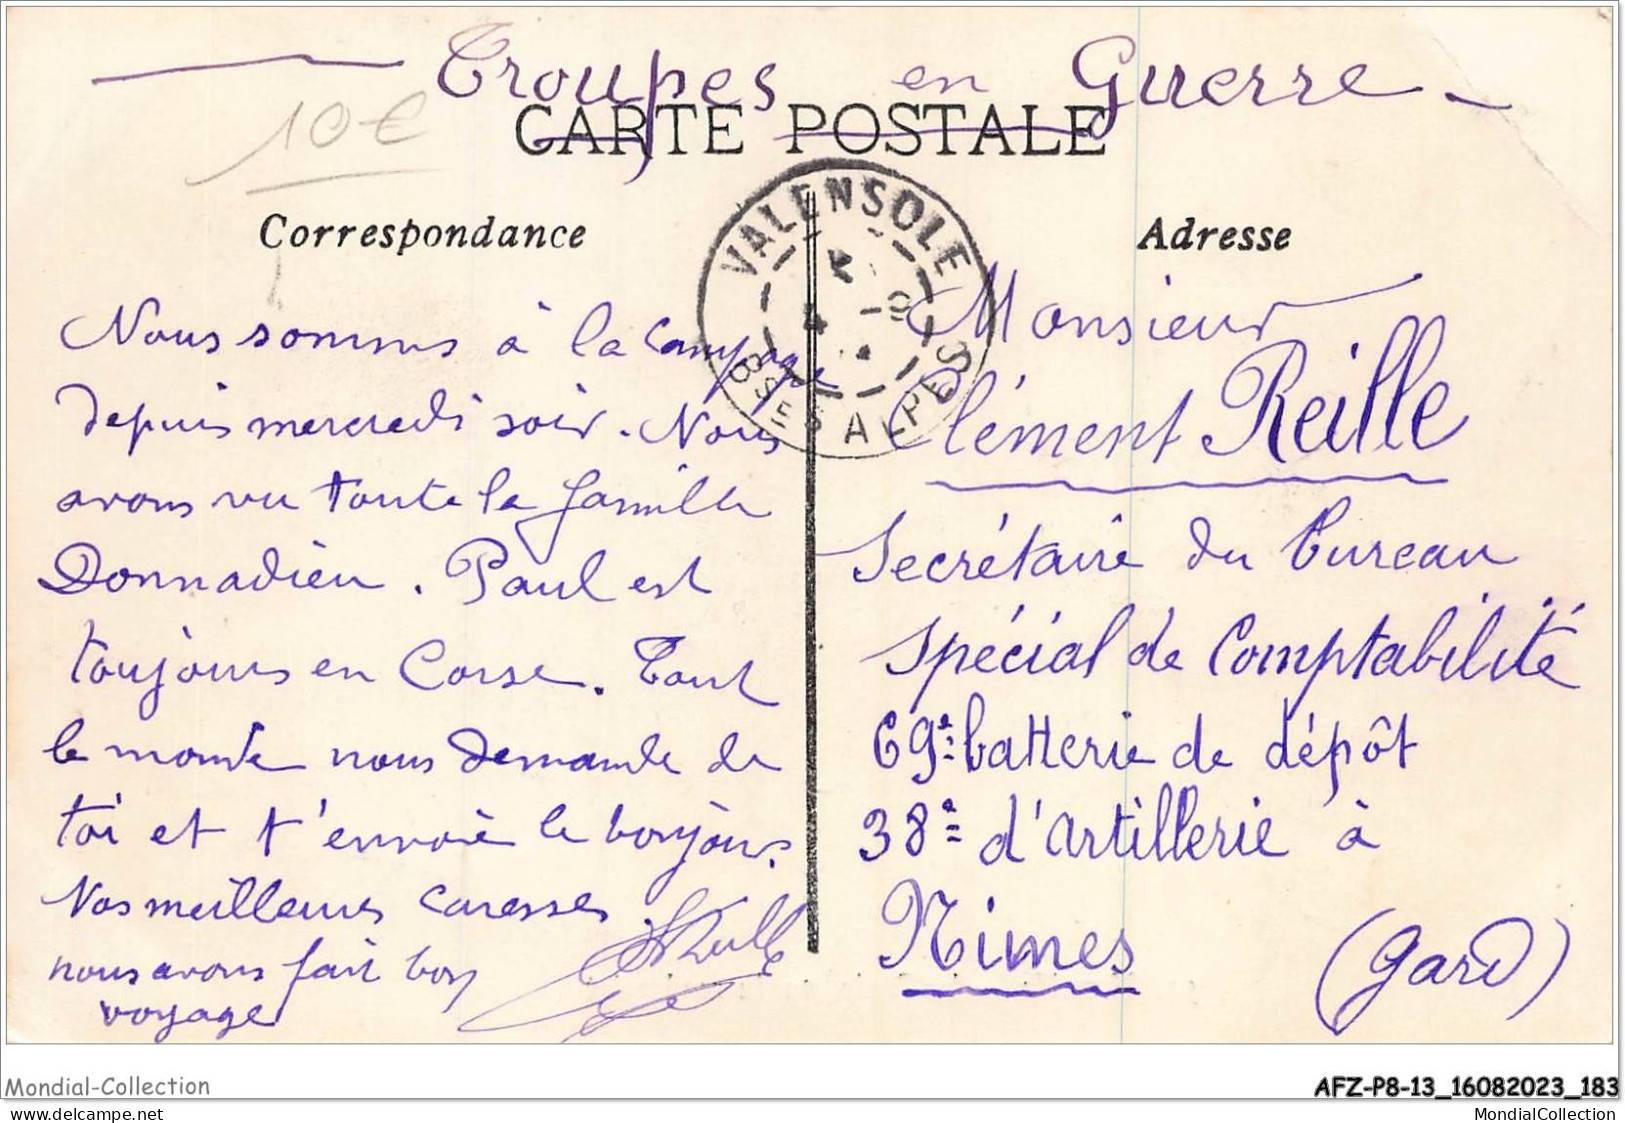 Troupes en Guerre
10€
CARTE POSTALE
Correspondance
Nous sommes à la campagne
depuis mercredi soir. Nous
avons vu toute la famille
Donnadieu. Paul est
toujours en Corse. Tout
le monde nous demande de
toi et t'envoie le bonjour.
Nos meilleures caresses.
nous avons fait bon
voyage
VALENSOLE
BSES ALPES
Adresse
Monsieur
Clément Reille
Secrétaire du bureau
Spécial de Comptabilité
69e batterie de dépôt
38e d'artillerie à
Nimes
(Gard)
Mondial-Collection
delcampe.net
AFZ-P8-13_16082023_183
MondialCollection